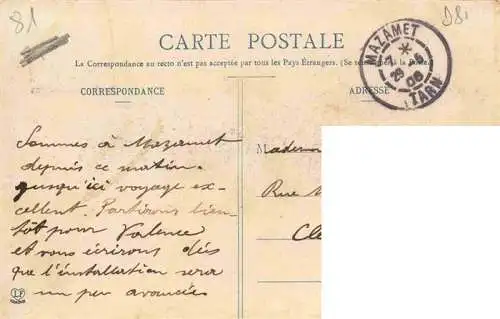 81
D81
CARTE POSTALE
La Correspondance au recto n'est pas acceptée par tous les Pays Étrangers. (Se à la Poste.)
MAZAMET
TARN
CORRESPONDANCE
ADRESSE
Sommes à Mazamet
depuis ce matin.
jusqu'ici voyage ex-
cellent. Partirons bien-
tôt pour Valence
et vous écrirons dès
que l'installation sera
un peu avancée
Madem
Rue
Cle
LF